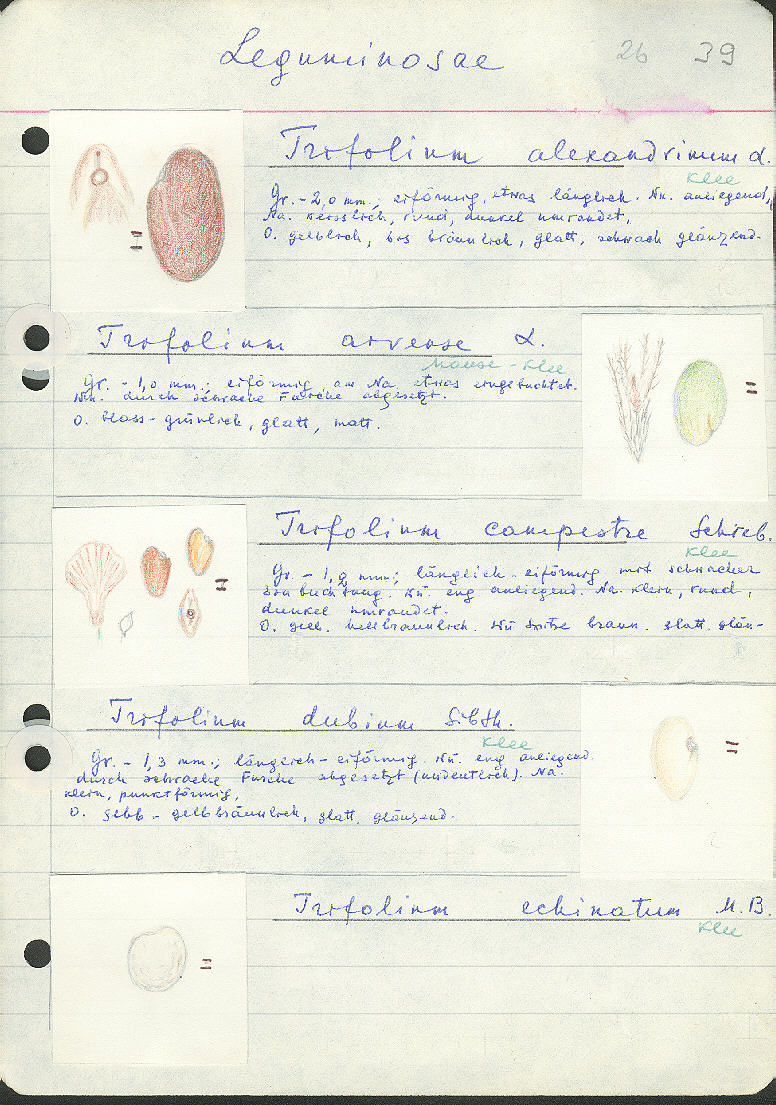 Leguminosae 26 39
Trifolium alexandrinum L.
Klee
Gr. - 2,0 mm.; eiförmig, etwas länglich. Nu. anliegend,
Na. weisslich, rund, dunkel umrandet,
O. gelblich, bis bräunlich, glatt, schwach glänzend.
Trifolium arvense L.
Mause - Klee
Gr. - 1,0 mm.; eiförmig am Na. etwas eingebuchtet.
Wu. durch schwache Fursche abgesetzt.
O. blass - grünlich, glatt, matt.
Trifolium campestre Schreb.
Klee
Gr. - 1, mm; länglich - eiförmig mit schwacher
Einbuchtung. Wü eng anliegend. Na. klein, rund,
dunkel umrandet.
O. gelb. hellbräunlich. Wü Spitze braun. glatt. glän-
Trifolium dubium Sibth.
Klee
Gr. - 1,3 mm.; länglich - eiförmig. Wü. eng anliegend.
durch schwache Fursche abgesetzt (undeutlich). Na.
klein, punktförmig,
O. gelb - gelbbräunlich, glatt, glänzend.
Trifolium echinatum M.B.
Klee